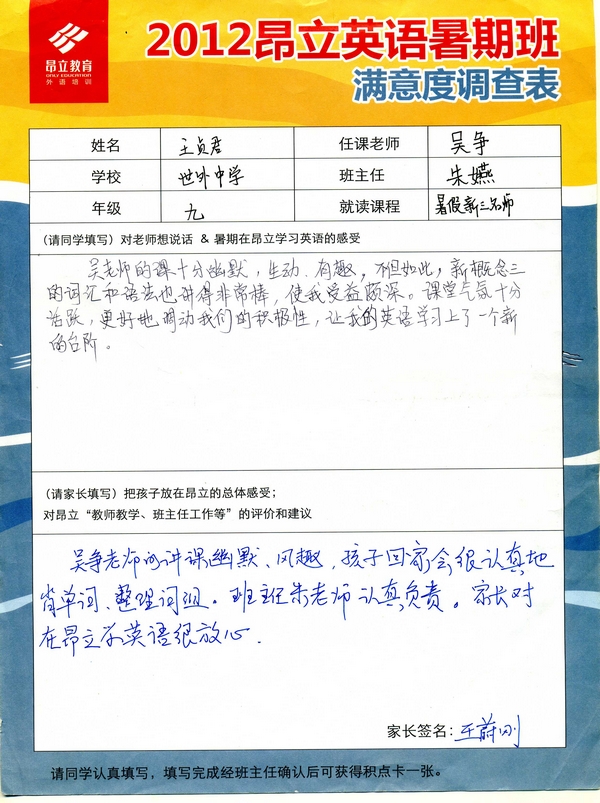 昂立教育
ONLY EDUCATION
外语培训
2012昂立英语暑期班
满意度调查表
姓名 王贞君 任课老师 吴争
学校 世外中学 班主任 朱嬿
年级 九 就读课程 暑假新三名师
(请同学填写) 对老师想说话 & 暑期在昂立学习英语的感受
吴老师的课十分幽默,生动.有趣,不但如此,新概念三
的词汇和语法也讲得非常棒,使我受益颇深。课堂气氛十分
活跃,更好地调动我们的积极性,让我的英语学习上了一个新
的台阶。
(请家长填写) 把孩子放在昂立的总体感受;
对昂立“教师教学、班主任工作等”的评价和建议
吴争老师的讲课幽默、风趣,孩子回家会很认真地
背单词、整理词组。班主任朱老师认真负责。家长对
在昂立学英语很放心.
家长签名: 王蔚刚
请同学认真填写,填写完成经班主任确认后可获得积点卡一张。